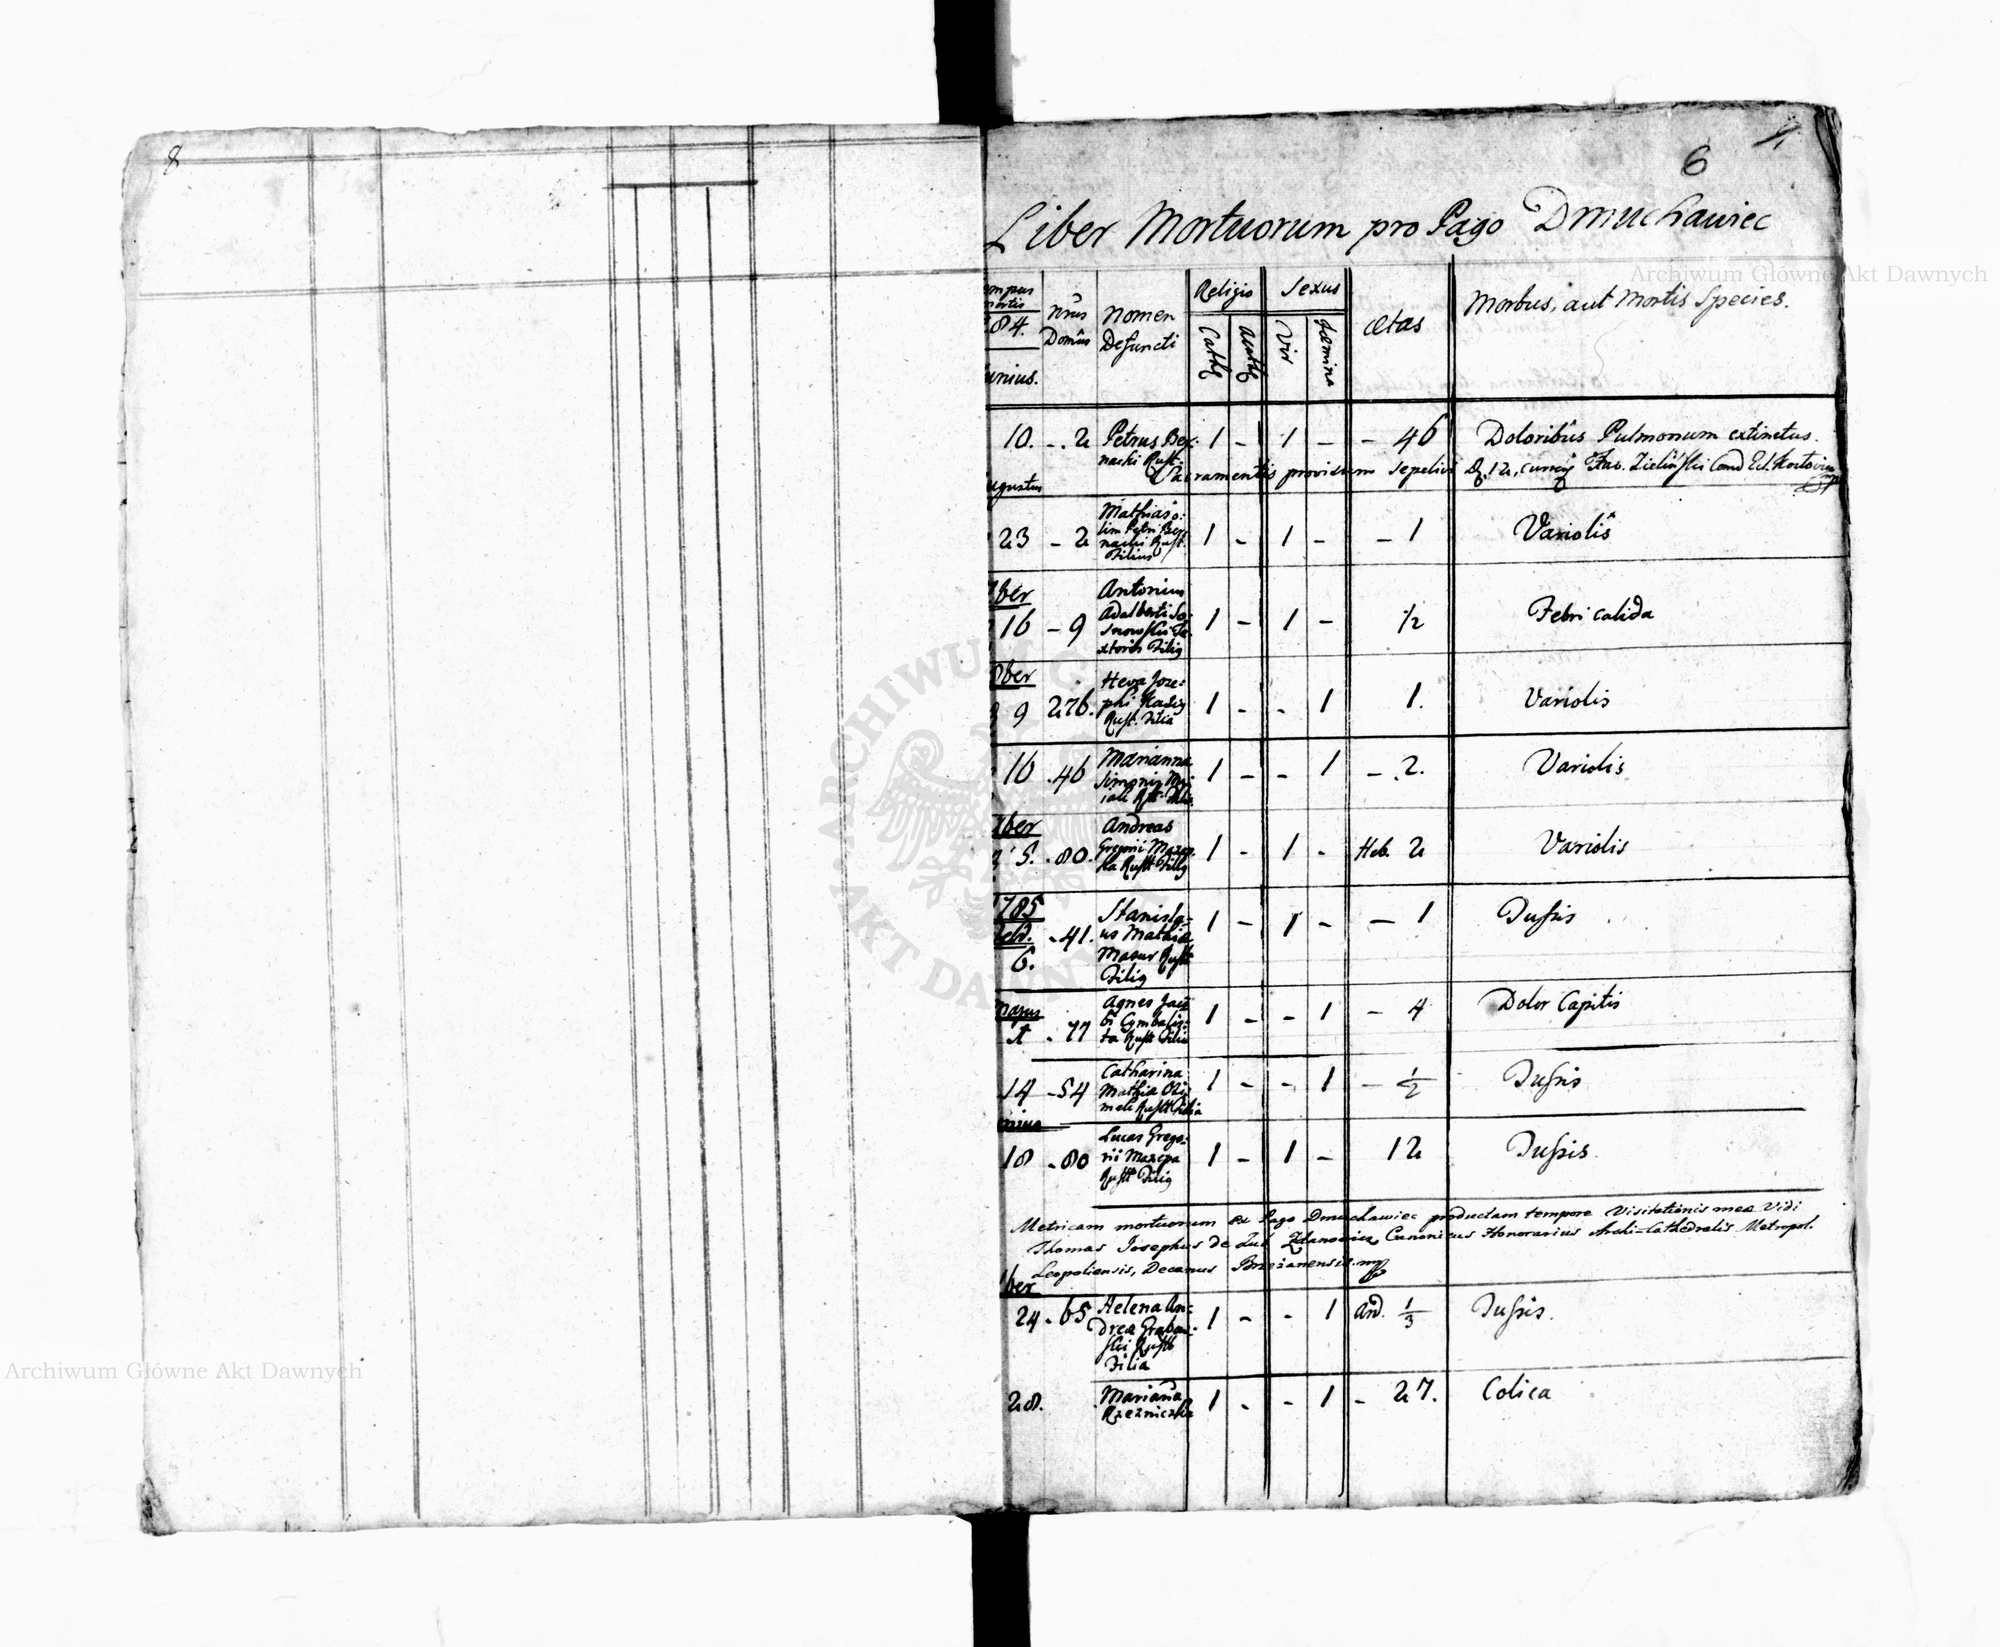 8
6
Liber Mortuorum pro Pago Dmuchawiec
Archiwum Główne Akt Dawnych
mpus
mortis
84.
unius.
Nrus
Domûs
Nomen
Defuncti
Religio
Cathol
Sexus
Vir
Fœmina
Ætas
Morbus, aut Mortis Species.
10. - . 2 Petrus Ber: 1 - 1 - - 46 Doloribus Pulmonum extinctus.
nacki Rust.
Sacramentis provisum sepelivi
ugustus
23 - 2 Mathias o:
lim Petri Ber:
nacki Rust.
Filius
1 - 1 - - 1 Variolis
7ber
16 - 9 Antonius
Adalberti So:
snowski Te:
xtoris Filig
1 - 1 - 1/2 Febri calida
8ber
9 276. Heva Joze:
phi
Rust. Filia
1 - - 1 1. Variolis
16 . 46 Marianna
Simonis
1 - - 1 - 2. Variolis
ber
5. . 80. Andreas
Gregorii Mazep:
ka Rustt Filig
1 - 1 - Heb. 2 Variolis
785
6.
- 41. Stanisla:
us Mathiæ
Mazur Rustt
Filig
1 - 1 - - 1 Tussis
Majus
. 77 Agnes Jaco
bi Cymbalis:
ta Rustt Filia
1 - - 1 - 4 Dolor Capitis
14 - 54 Catharina
Mathiæ
Rustt Filia
1 - - 1 - 1/2 Tussis
nius
18 - 80 Lucas Grego:
rii Mazepa
Rustt Filig
1 - 1 - 12 Tussis
Metricam mortuorum ex Pago Dmuchawiec productam tempore Visitationis mea Vidi
Thomas Josephus de Zdanowicz Canonicus Honorarius Archi-Cathedralis Metropol.
Leopoliensis, Decanus Brzezanensis mp
ber
24 - 65 Helena An:
dreæ Grabow:
ski Rustt
Filia
1 - - 1 1/3 Tussis.
28. Marianna
Rzezniczka
1 - - 1 - 27. Colica
ARCHIWUM G
AKT DAWNY
Archiwum Główne Akt Dawnych